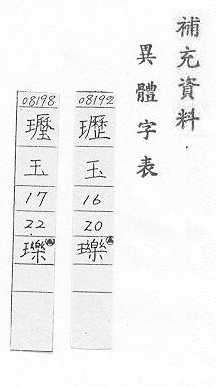 補充資料
異體字表
08192
瓑
玉
16
20
瓅
08198
玉
17
22
瓅